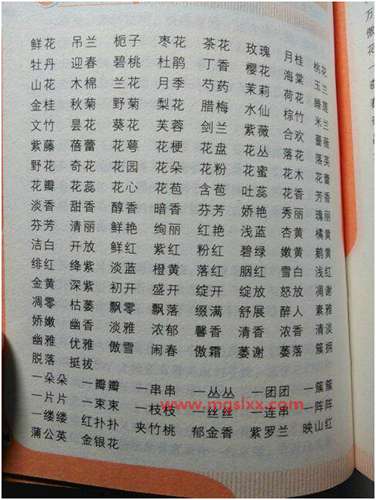 鲜花 吊兰 栀子 枣花 茶花 玫瑰 月桂 桃花
牡丹 迎春 碧桃 杜鹃 丁香 樱花 海棠 玉兰
山花 木棉 兰花 月季 芍药 茉莉 荷花 睡莲
金桂 秋菊 野菊 梨花 腊梅 水仙 棕竹 米兰
文竹 昙花 葵花 芙蓉 剑兰 紫薇 合欢 蔷薇
紫藤 蓓蕾 花萼 花梗 花盘 花丛 落花 落英
野花 奇花 花园 花朵 花粉 花蜜 花木 花蕾
花瓣 花蕊 花心 花苞 含苞 吐蕊 花香 芳香
淡香 甜香 醇香 暗香 芬芳 娇艳 秀丽 瑰丽
芬芳 清丽 鲜艳 绚丽 红艳 浅蓝 杏黄 橘黄
洁白 开放 鲜红 紫红 粉红 碧绿 嫩黄 鹅黄
绯红 绛紫 淡蓝 橙黄 落红 胭红 雪白 浅红
金黄 深紫 初开 盛开 绽开 绽放 怒放 凋谢
凋零 枯萎 飘零 飘落 缀满 舒展 醉人 素雅
娇嫩 幽香 淡雅 浓郁 馨香 清香 浓香 清淡
幽雅 优雅 傲雪 闹春 傲霜 萎谢 萎落 簇拥
脱落 挺拔
一朵朵 一瓣瓣 一串串 一丛丛 一团团 一簇簇
一片片 一束束 一枝枝 一丝丝 一连串 一阵阵
www.mgslxx.com
一缕缕 红扑扑 夹竹桃 郁金香 紫罗兰 映山红
蒲公英 金银花